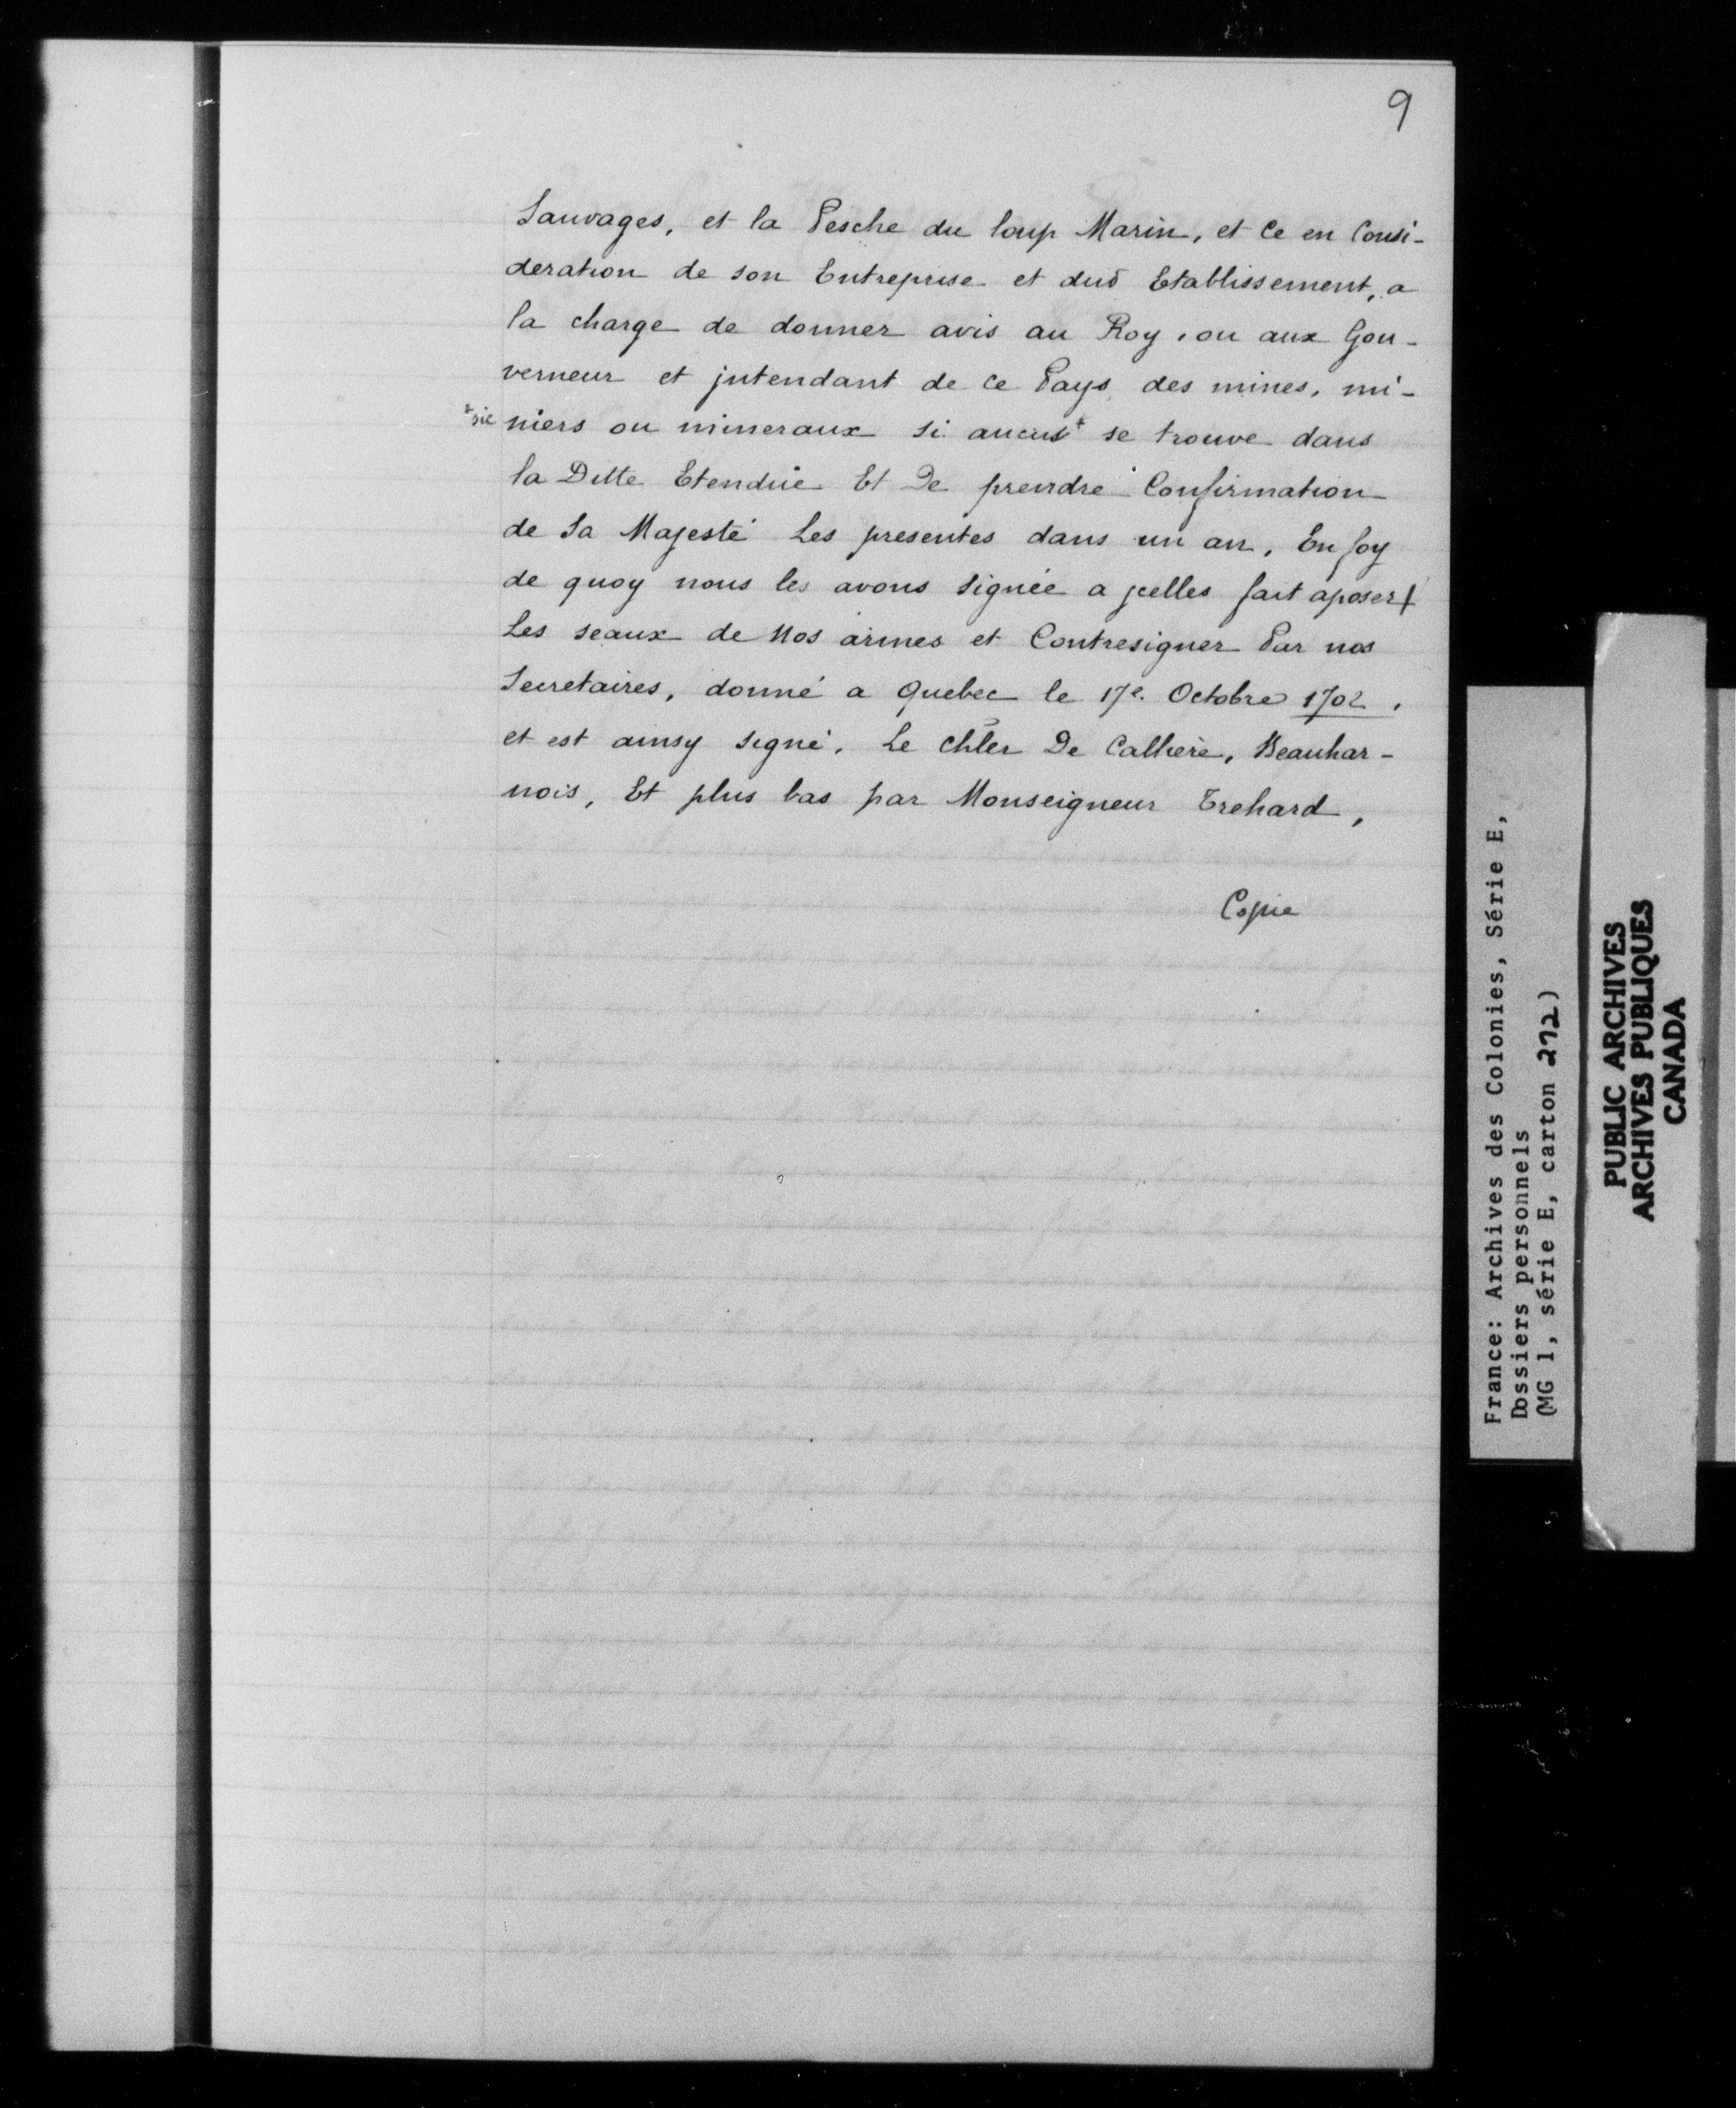 9
Sauvages, et la Pesche du loup Marin, et Ce en Consi-
deration de son Entreprise et dud Etablissement, a
la charge de donner avis au Roy, ou aux Gou-
verneur et jntendant de ce Pays, des mines, mi-
+ sic niers ou mineraux si aucus+ se trouve dans
la Ditte Etendüe Et De prendre Confirmation
de Sa Majesté Les presentes dans un an, En foy
de quoy nous les avons signée a jcelles fait aposer+
Les seaux de Nos armes et Contresigner Par nos
Secretaires, donné a Quebec le 17e. Octobre 1702,
et est ainsy signé, Le Chler De Calliere, Beauhar-
nois, Et plus bas par Monseigneur Trehard,
Copie
France: Archives des Colonies, Série E,
Dossiers personnels
(MG 1, série E, carton 272)
PUBLIC ARCHIVES
ARCHIVES PUBLIQUES
CANADA